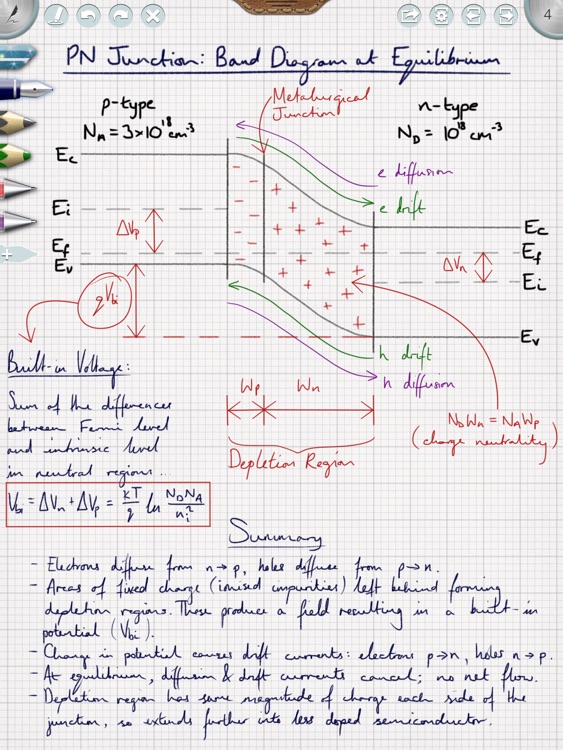 4
PN Junction: Band Diagram at Equilibrium
p-type
N_A = 3×10^18 cm^-3
Metallurgical
Junction
n-type
N_D = 10^18 cm^-3
e diffusion
e drift
Ec
Ei
Ef
Ev
ΔVp
qVbi
Ec
Ef
Ei
Ev
ΔVn
h drift
h diffusion
Wp
Wn
Depletion Region
N_D W_n = N_A W_p
(charge neutrality)
Built-in Voltage:
Sum of the differences
between Fermi level
and intrinsic level
in neutral regions..
Vbi = ΔVn + ΔVp = kT/q ln N_D N_A / n_i^2
Summary
- Electrons diffuse from n→p, holes diffuse from p→n.
- Areas of fixed charge (ionised impurities) left behind forming
depletion regions. These produce a field resulting in a built-in
potential (Vbi).
- Change in potential causes drift currents: electrons p→n, holes n→p.
- At equilibrium, diffusion & drift currents cancel; no net flow.
- Depletion region has same magnitude of charge each side of the
junction, so extends further into less doped semiconductor.